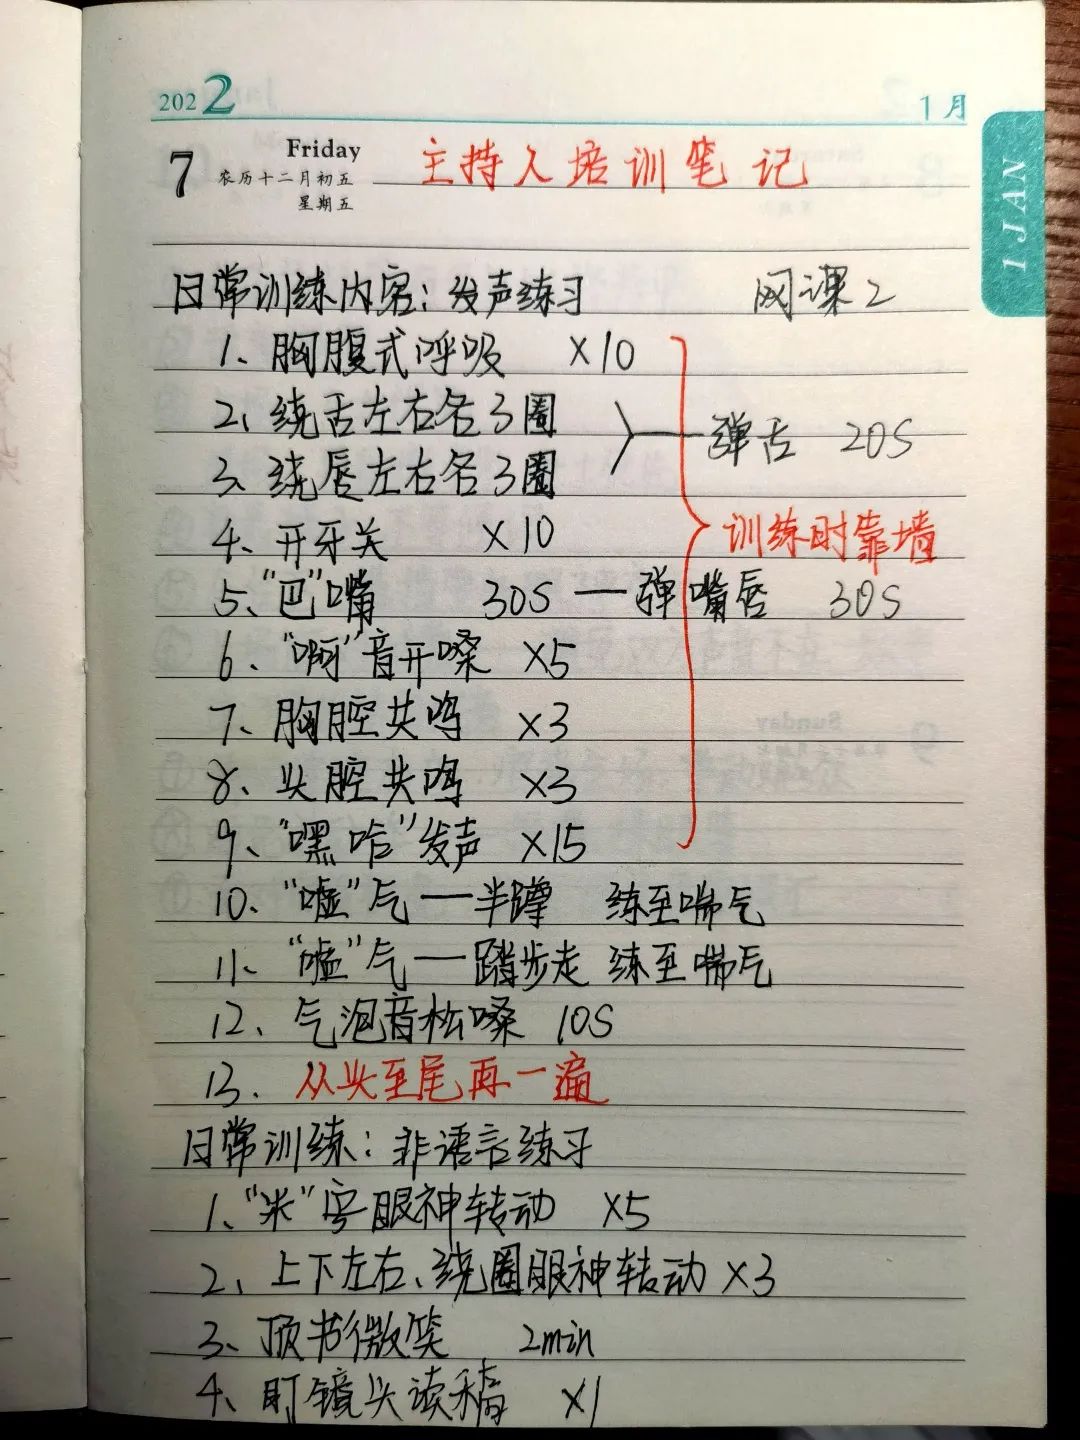 2022 1月
7 Friday 主持人培训笔记
农历十二月初五
星期五
1 JAN
日常训练内容：发声练习 网课2
1、胸腹式呼吸 ×10
2、绕舌左右各3圈
弹舌 20S
3、绕唇左右各3圈
4、开牙关 ×10
训练时靠墙
5、“巴”嘴 30S — 弹嘴唇 30S
6、“啊”音开嗓 ×5
7、胸腔共鸣 ×3
8、头腔共鸣 ×3
9、“嘿咋”发声 ×15
10、“嘘”气 — 半蹲 练至喘气
11、“嘘”气 — 踏步走 练至喘气
12、气泡音松嗓 10S
13. 从头至尾再一遍
日常训练：非语言练习
1、“米”字眼神转动 ×5
2、上下左右、绕圈眼神转动 ×3
3、顶书微笑 2min
4、盯镜头读稿 ×1